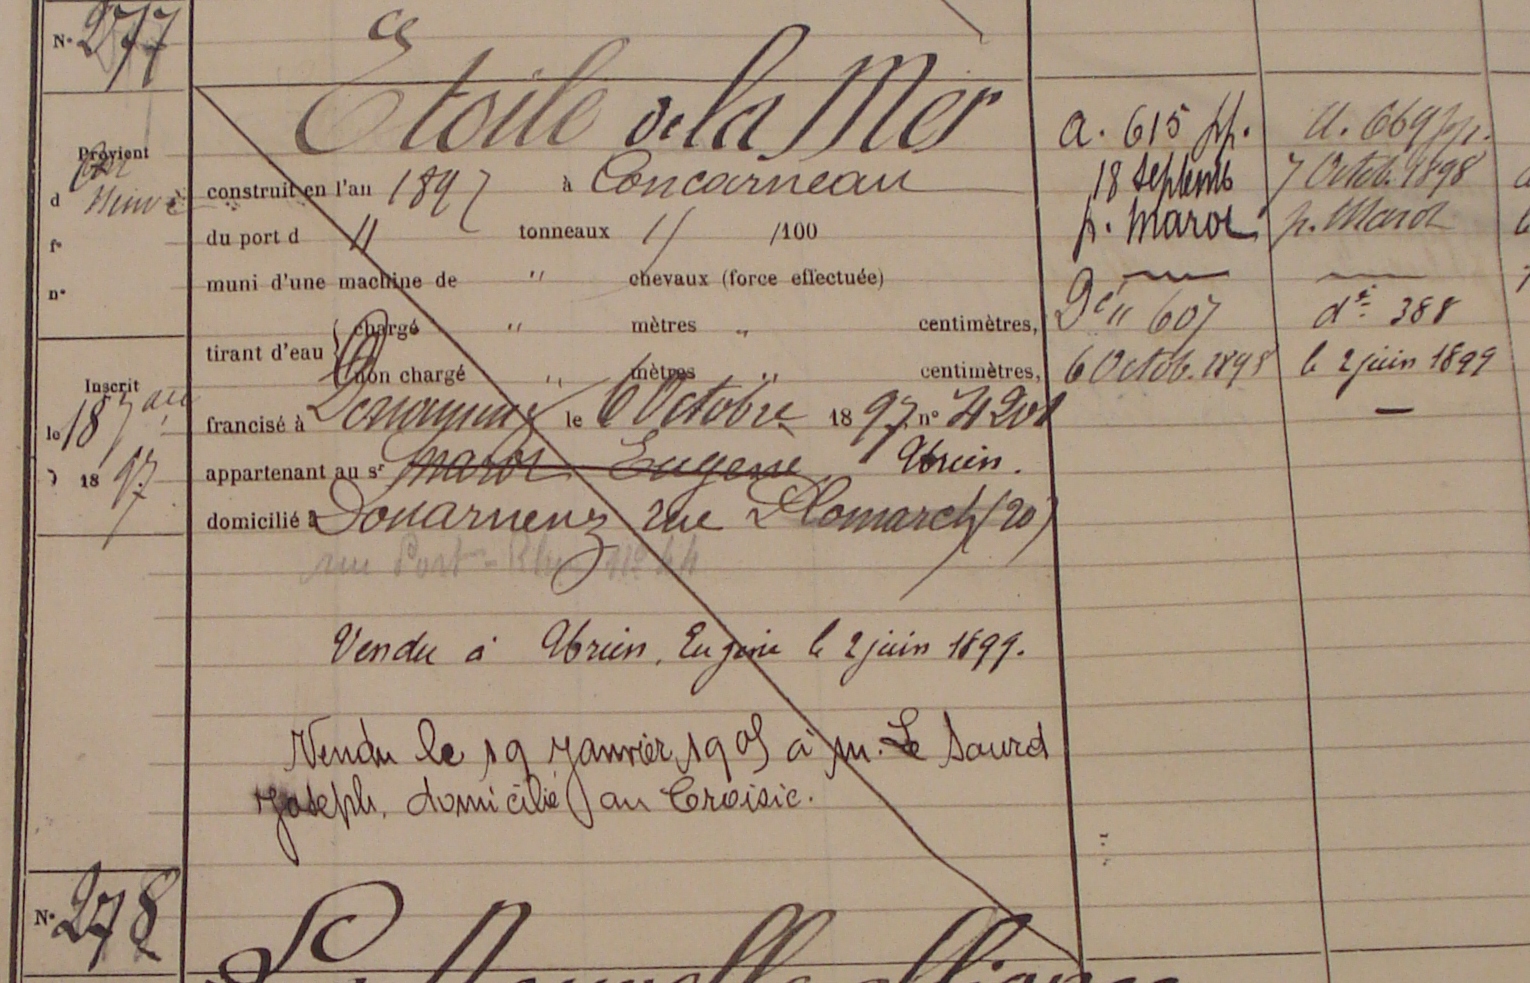 N° 277
Etoile de la Mer
Provient
d
f°
n°
construit en l'an 1897 à Concarneau
du port d " tonneaux " /100
muni d'une machine de " chevaux (force effectuée)
tirant d'eau
chargé " mètres " centimètres,
non chargé " mètres " centimètres,
Inscrit
le 18
18 97
francisé à Douarnenez le 6 Octobre 1897. n° 4201
appartenant au sr Marot Eugène Abrien.
domicilié à Douarnenez rue Plomarch (20)
rue Port-Rhu N° 44
Vendu à Abrien, Eugène le 2 juin 1899.
Vendu le 19 Janvier 1905 à M. Le Sourd
Joseph, domicilié au Croisic.
a. 615 pp.
18 Septemb
p. Marot
607
6 Octob. 1898
a. 669 pp.
7 Octob. 1898
p. Marot
d° 388
le 2 juin 1899
N° 278
La Nouvelle alliance